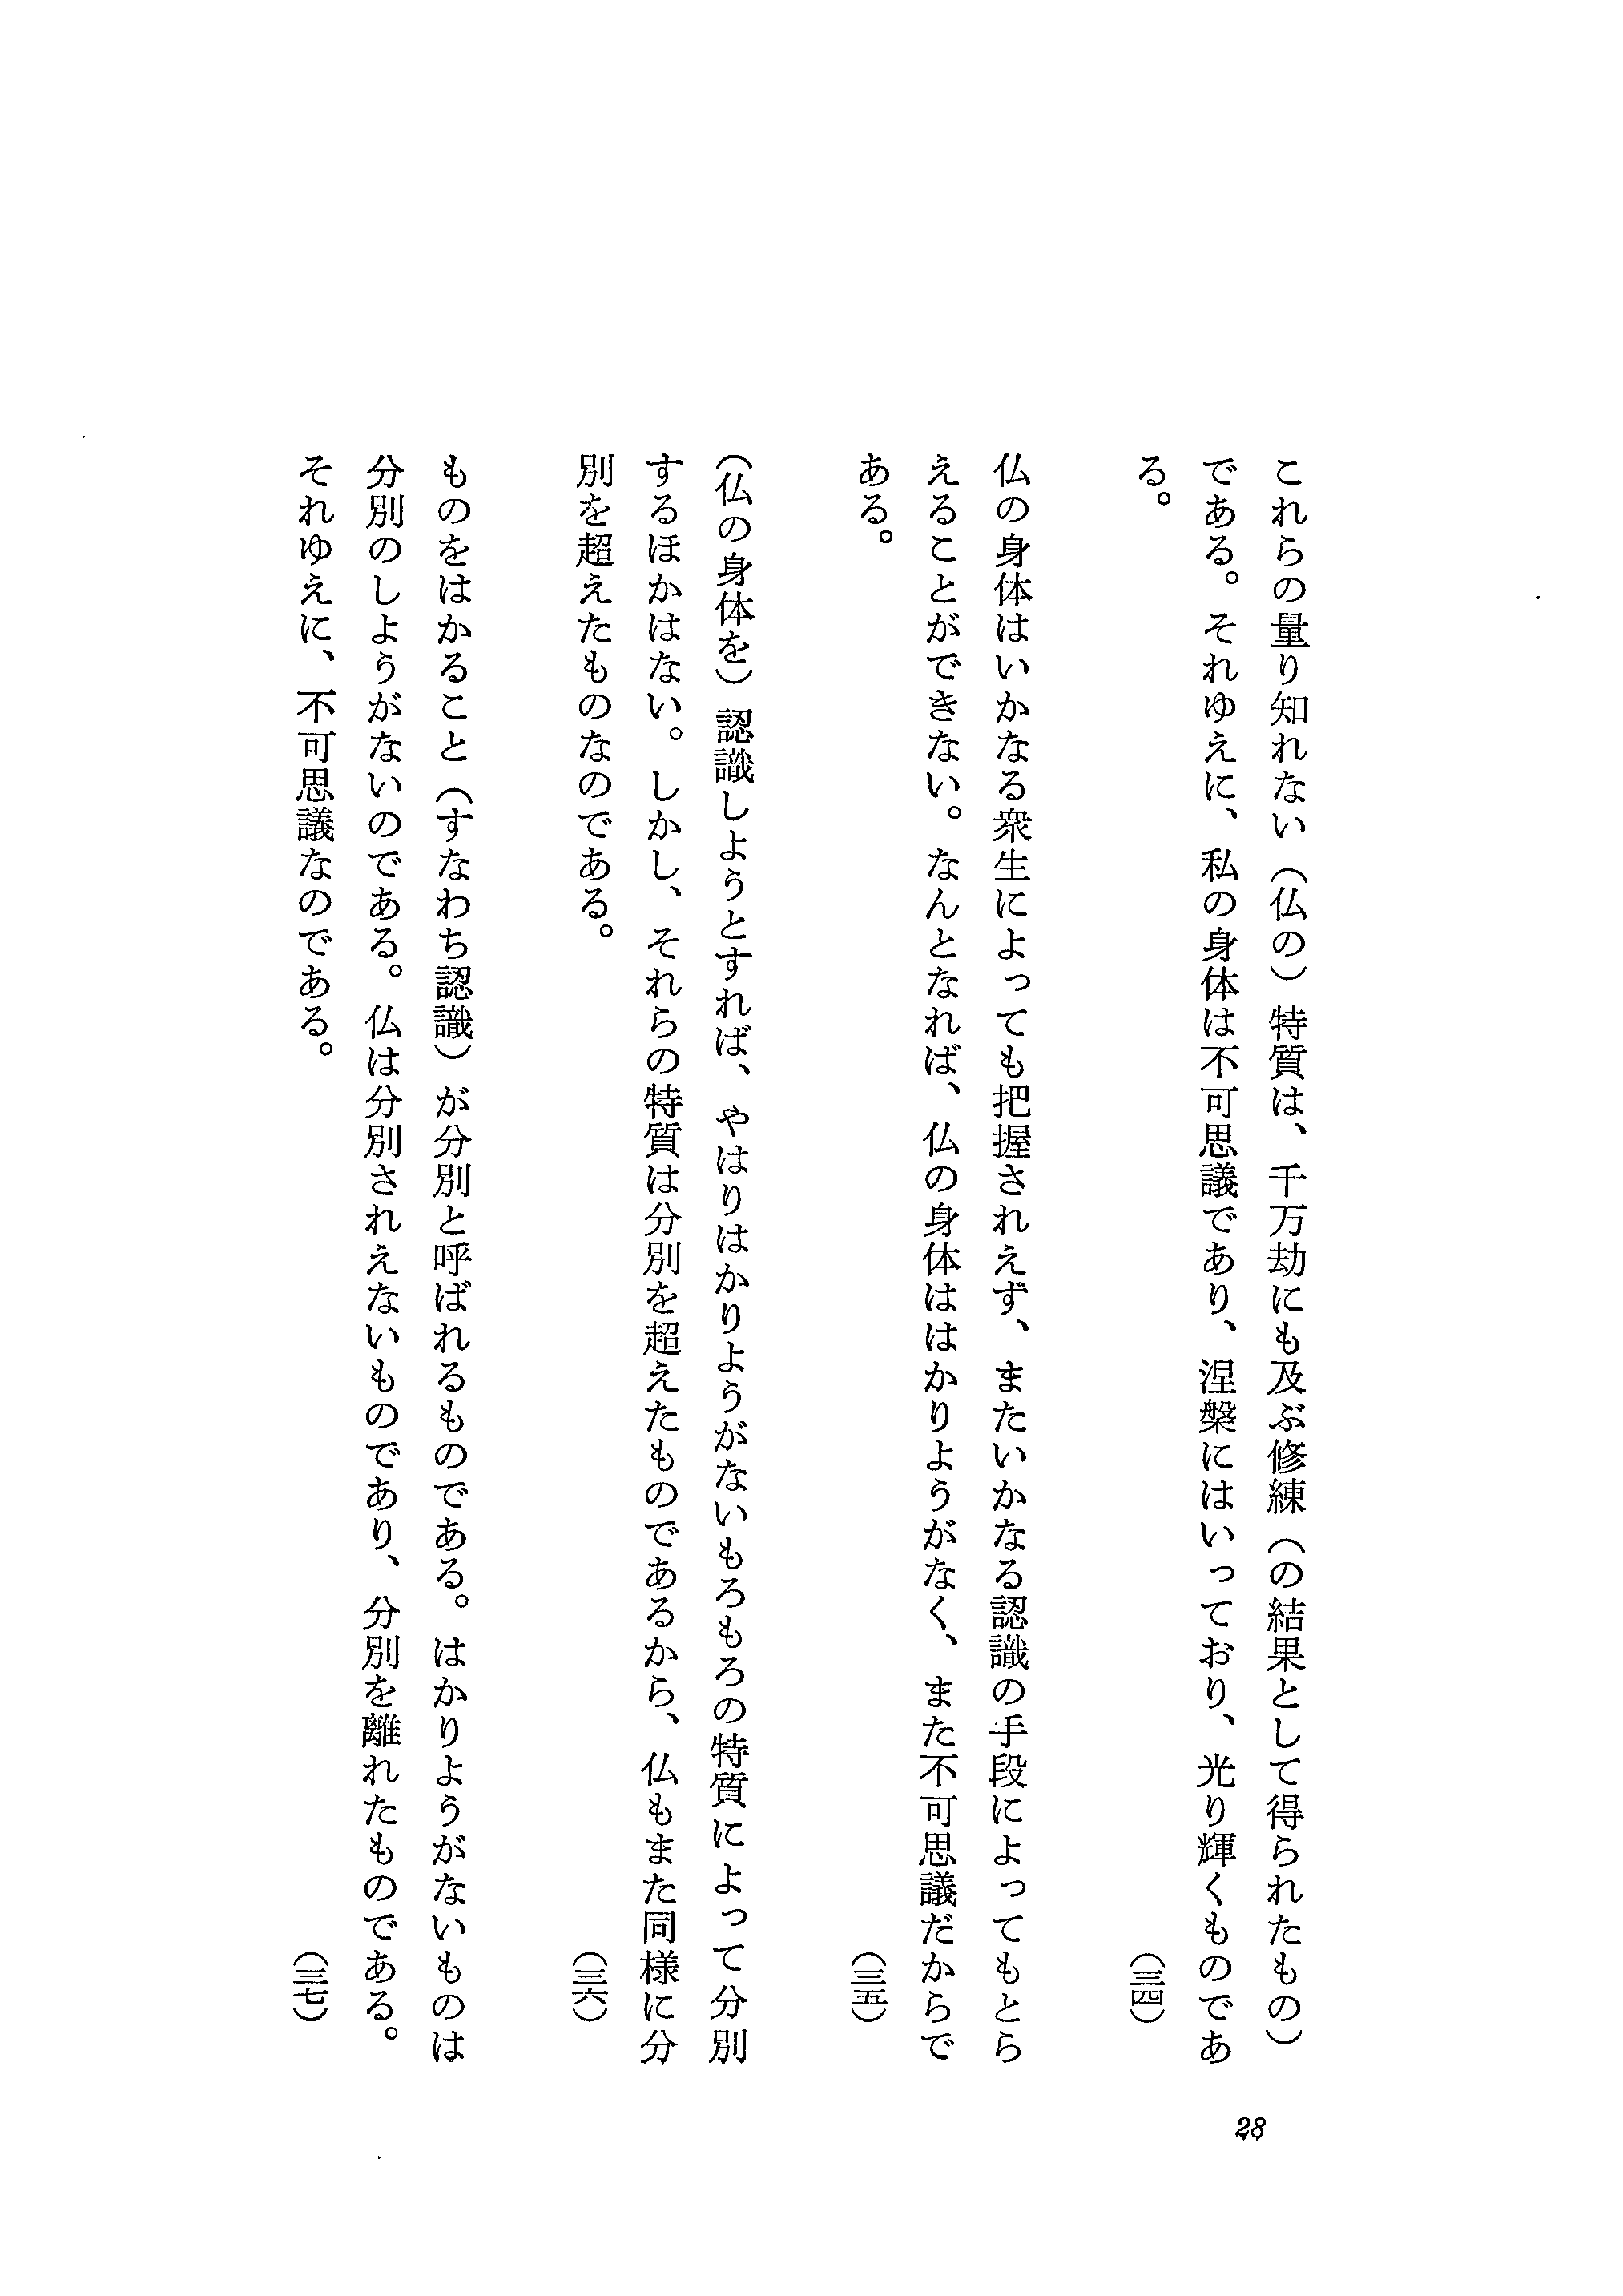 これらの量り知れない（仏の）特質は、千万劫にも及ぶ修練（の結果として得られたもの）
である。それゆえに、私の身体は不可思議であり、涅槃にはいっており、光り輝くものであ
る。（三四）
仏の身体はいかなる衆生によっても把握されえず、またいかなる認識の手段によってもとら
えることができない。なんとなれば、仏の身体ははかりようがなく、また不可思議だからで
ある。（三五）
（仏の身体を）認識しようとすれば、やはりはかりようがないもろもろの特質によって分別
するほかはない。しかし、それらの特質は分別を超えたものであるから、仏もまた同様に分
別を超えたものなのである。（三六）
ものをはかること（すなわち認識）が分別と呼ばれるものである。はかりようがないものは
分別のしようがないのである。仏は分別されえないものであり、分別を離れたものである。
それゆえに、不可思議なのである。（三七）
28